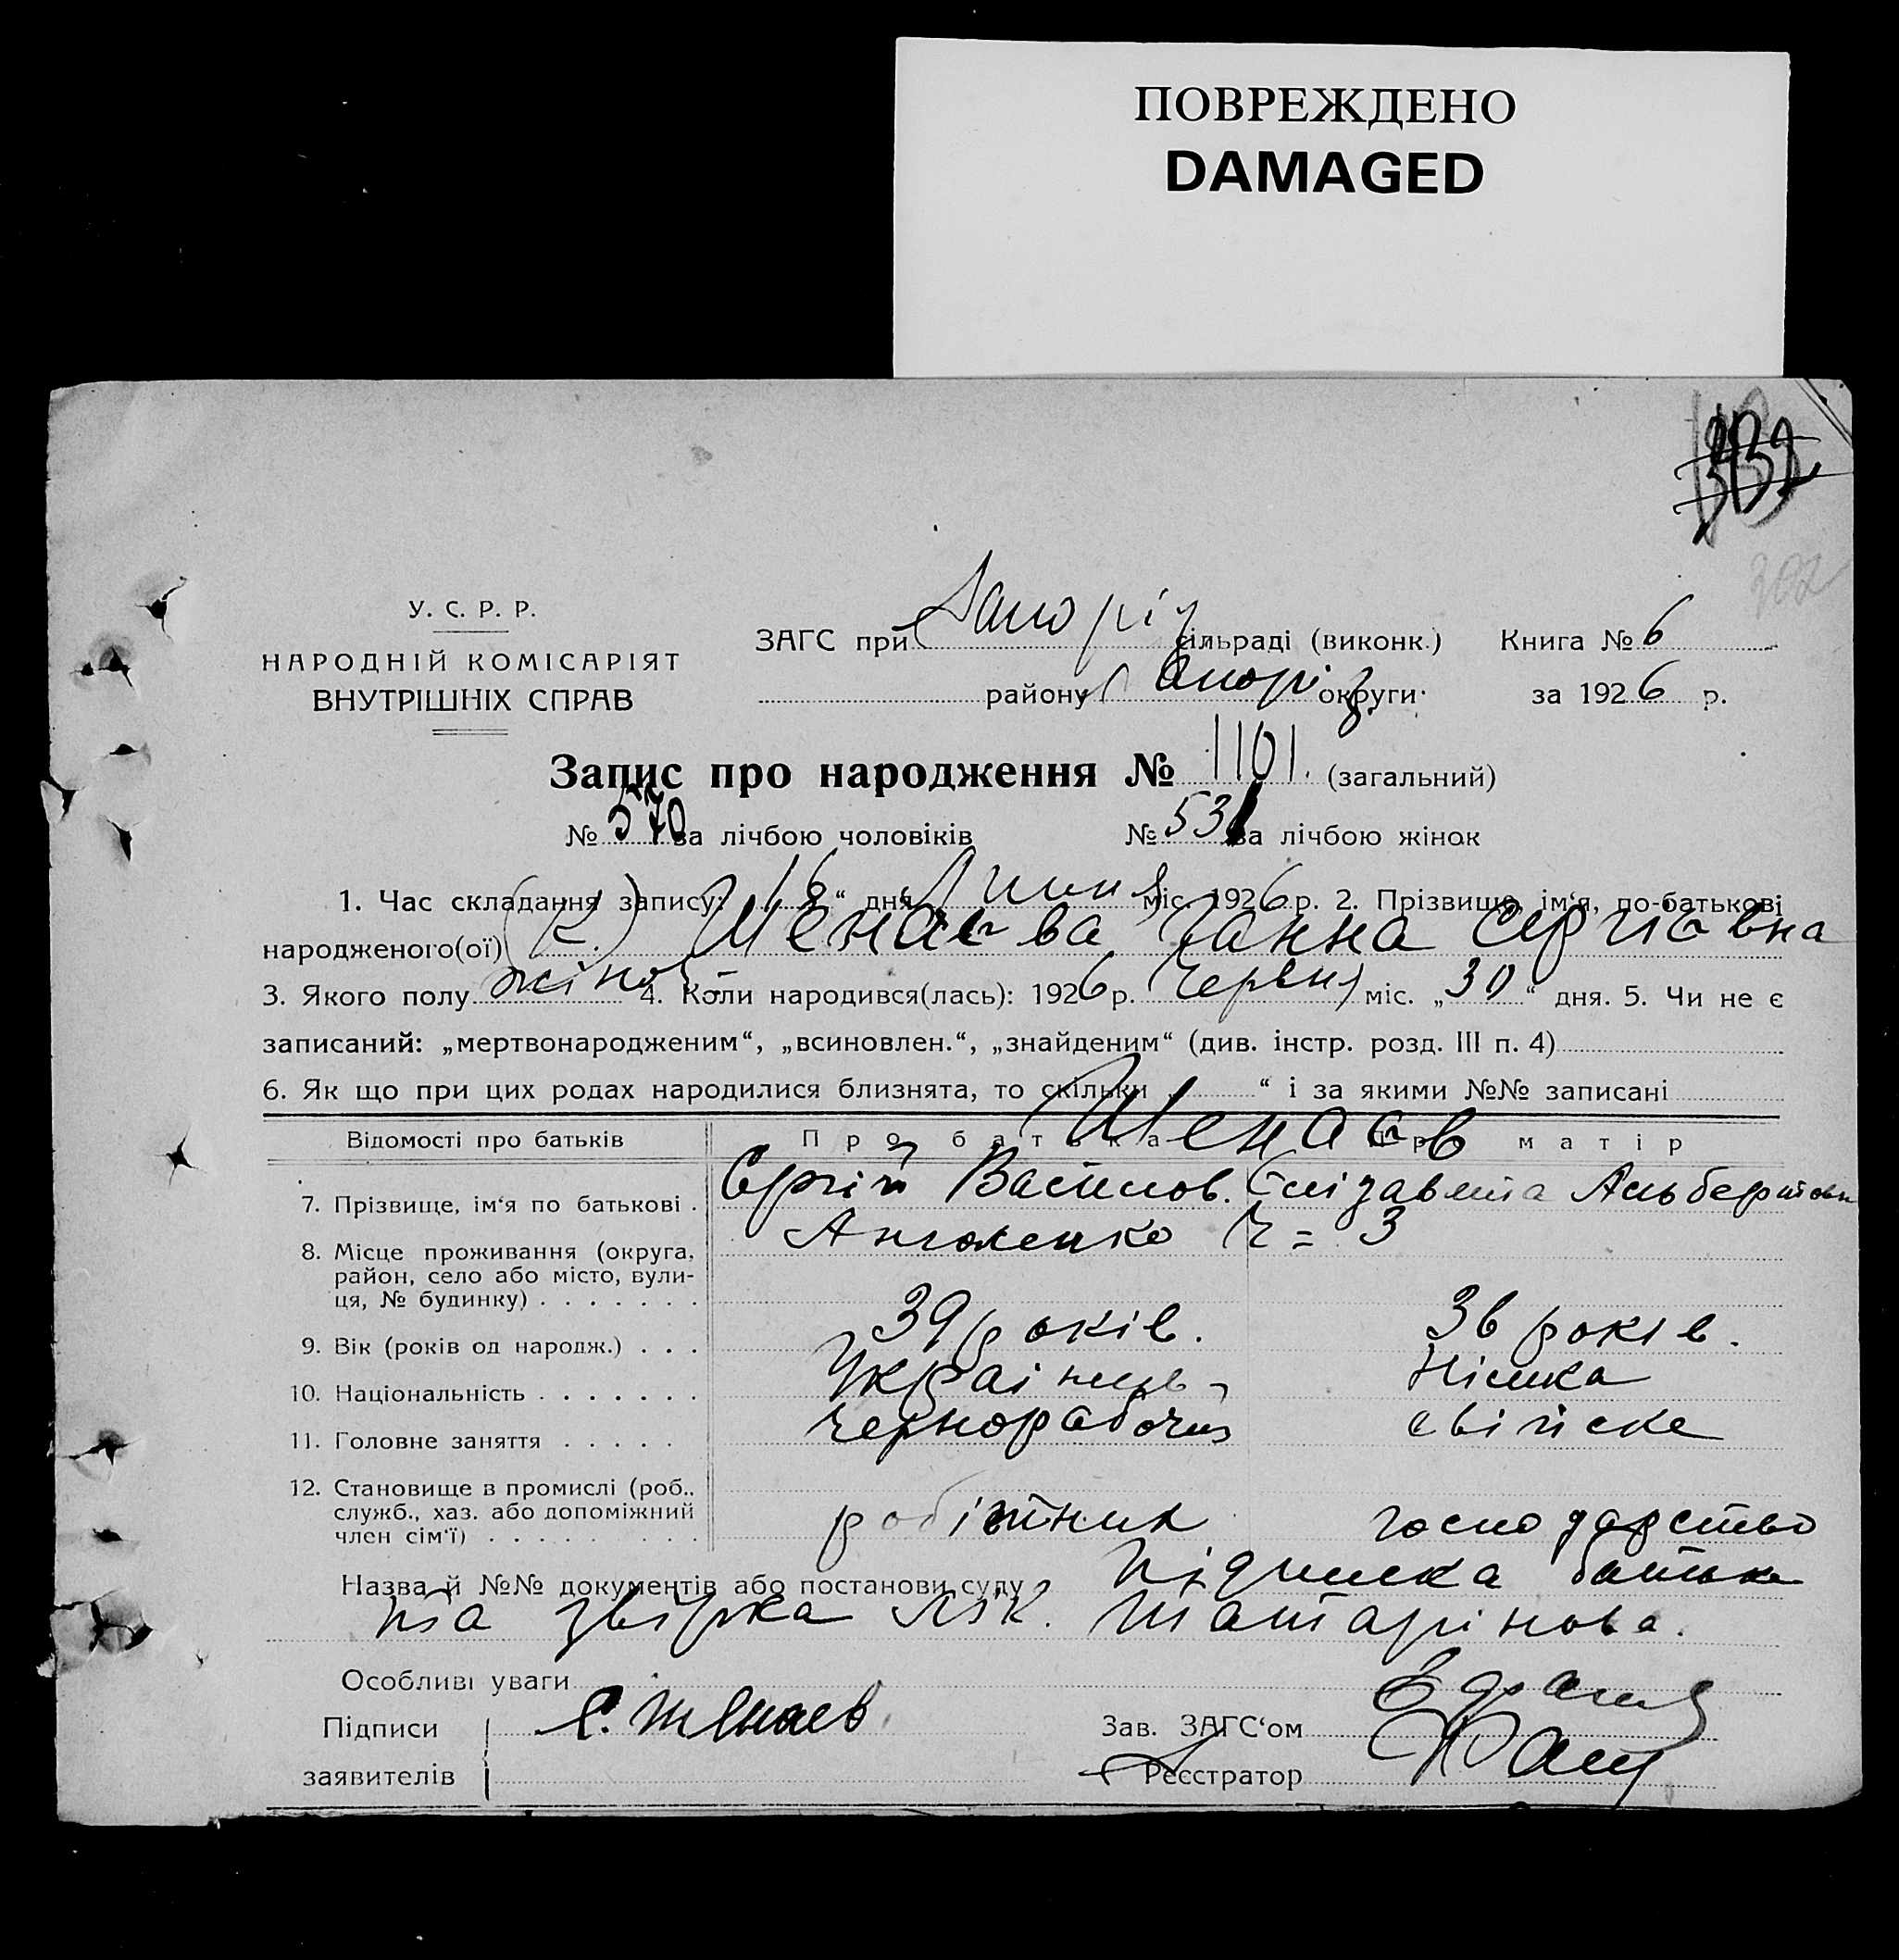 ПОВРЕЖДЕНО
DAMAGED
302
У. С. Р. Р.
НАРОДНІЙ КОМІСАРІЯТ
ВНУТРІШНІХ СПРАВ
ЗАГС при Запоріз. сільраді (виконк.) Книга № 6
району Запоріз. округи за 1926 р.
Запис про народження № 1101. (загальний)
№ 570 за лічбою чоловіків № 531 за лічбою жінок
1. Час складання запису: „16“ дня Липня міс. 1926 р. 2. Прізвище, ім‘я, по-батькові
народженого(ої) Шенаєва Ганна Сергіївна
3. Якого полу жіноч. 4. Коли народився(лась): 1926 р. Червня міс. „30“ дня. 5. Чи не є
записаний: „мертвонародженим“, „всиновлен.“, „знайденим“ (див. інстр. розд. III п. 4)
6. Як що при цих родах народилися близнята, то скільки „ “ і за якими №№ записані
Відомості про батьків Про батька Про матір
Шенаєв
7. Прізвище, ім‘я по батькові . Сергій Василов. Єлізавета Альбертовн
8. Місце проживання (округа, район, село або місто, вули- ця, № будинку) . . . . . . . Ч = 3
9. Вік (років од народж.) . . . 39 років. 36 років.
10. Національність . . . . . . . Українець Німка
11. Головне заняття . . . . . чернорабочий свійске
12. Становище в промислі (роб., служб., хаз. або допоміжний член сім‘ї) . . . . . . . . . робітник господарство
Назва й №№ документів або постанови суду Підписка батька
та звірка лік. Татарінова.
Особливі уваги
Підписи С. Шенаев Зав. ЗАГС‘ом
заявителів Реєстратор